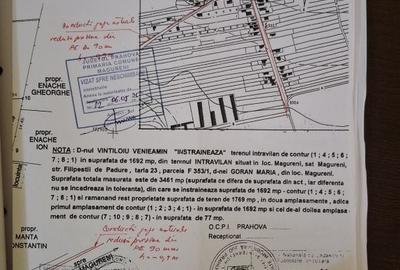 Conducta gaze naturale
redusa presiune din
PE 90 mm
Judetul PRAHOVA
PRIMARIA COMUNEI
MAGURENI
VIZAT SPRE NESCHIMBARE
Anexa la autorizatia de
propr.
ENACHE
GHEORGHE
propr.
ENACHE
ION
NOTA : D-nul VINTILOIU VENIEAMIN "INSTRAINEAZA" terenul intravilan de contur (1 ; 4 ; 5 ; 6 ;
7 ; 8 ; 1) in suprafata de 1692 mp, din terenul INTRAVILAN situat in loc. Magureni, sat Magureni,
str. Filipesti de Padure, tarla 23, parcela F 353/1, d-nei GORAN MARIA, din loc. Magureni.
Suprafata totala masurata este de 3461 mp (suprafata ce difera de suprafata din act, iar diferenta
nu se incadreaza in toleranta), din care se instraineaza suprafata de 1692 mp - contur (1 ; 4 ; 5 ; 6 ;
7 ; 8 ; 1) si ramanand rest proprietate suprafata de teren de 1769 mp , in doua amplasamente , adica
primul amplasament de contur (1 ; 2 ; 3 ; 4 ; 1) - in suprafata de 1692 mp si cel de-al doilea amplasa-
ment de contur (7 ; 10 ; 9 ; 8 ; 7) - in suprafata de 77 mp.
propr.
MANTA
CONSTANTIN
O.C.P.I. PRAHOVA
Receptionat
Conducta gaze naturale
redusa presiune din
PE 90 mm
MAGURENI